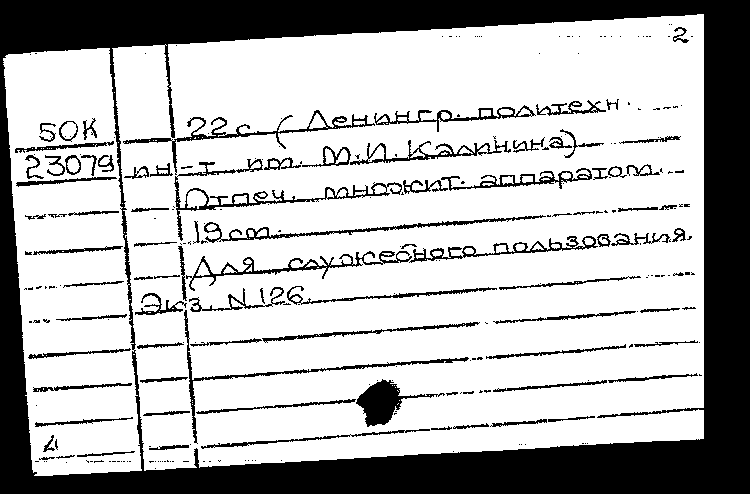 2
50К 22с. (Ленингр. политехн.
23079 ин-т им. М.И. Калинина)
Отпеч. множит. аппаратом.
19 см.
Для служебного пользования
Экз. N 126.